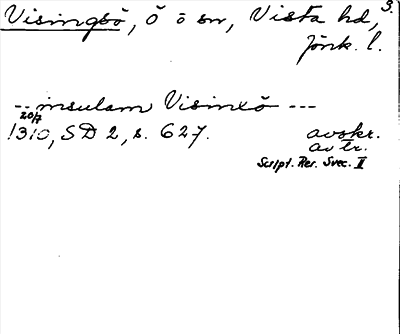 Visingsö, Ö ö sn, Vista hd, 3.
Jönk. l.
-- insulam Visinxö ---
20/7
1310, SD 2, s. 627. avskr.
av tr.
Script. Rer. Svec. II